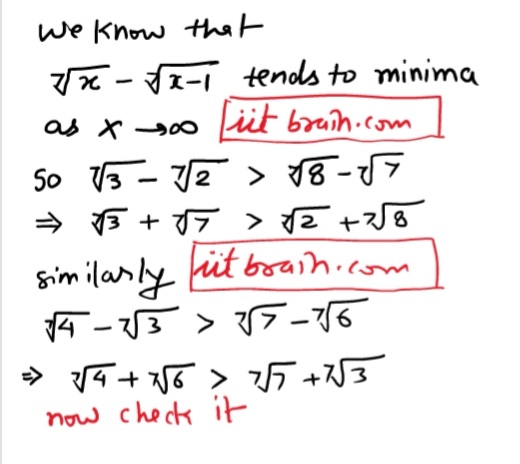 we know that
⁷√x - ⁷√x-1 tends to minima
as x →∞ iit brain.com
So ⁷√3 - ⁷√2 > ⁷√8 - ⁷√7
⇒ ⁷√3 + ⁷√7 > ⁷√2 + ⁷√8
similarly iit brain.com
⁷√4 - ⁷√3 > ⁷√7 - ⁷√6
⇒ ⁷√4 + ⁷√6 > ⁷√7 + ⁷√3
now check it